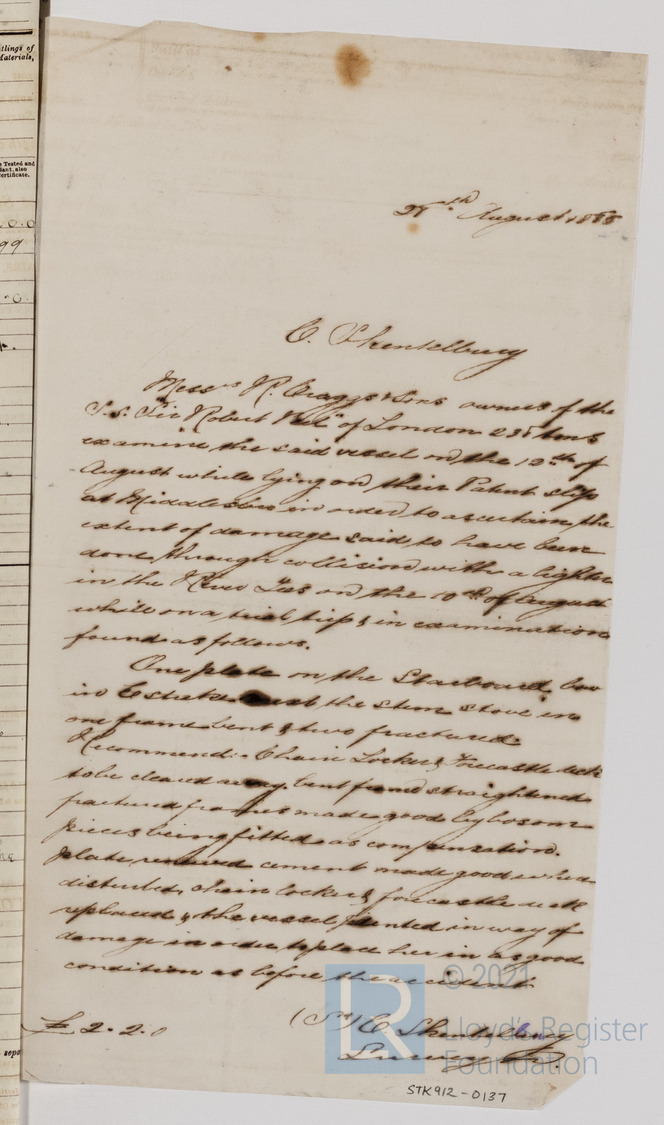 ttlings of
Materials,
e Tested and
dant, also
ertificate.
0.0
99
August 1868
C. Shentelbury
Messrs R. Craggs & Sons owners of the
S.S. Sir Robert of London 235 tons
examine the said vessel on the 12th of
August while lying on their Patent slip
at Middlesbro in order to ascertain the
extent of damage said to have been
done through collision with a lighter
in the River Tees on the 10th of August
while on a trial trip & in examination
found as follows.
One plate on the Starboard bow
in C strake the stem stove in
one frame bent & two fractured.
Recommend:- Chain Locker & Forecastle deck
to be cleared away, bent frame straightened
fractured frames made good by bosom
pieces being fitted as compensation.
plate renewed cement made good where
disturbed, chain locker & forecastle deck
replaced & the vessel painted in way of
damage in order to place her in as good
condition as before the accident.
£ 2.2.0
(Sd) C Shentelbury
© 2021
Lloyd's Register
Foundation
LR
STK912-0137